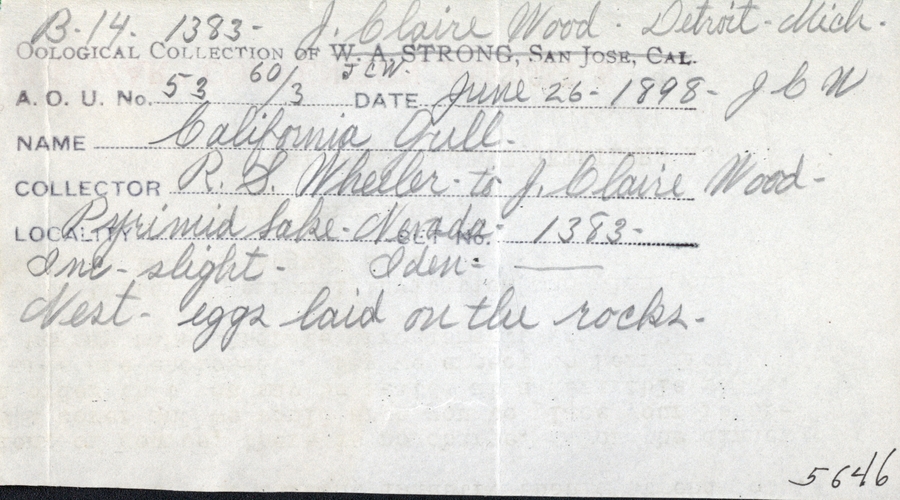 B-14. 1383- J. Claire Wood. Detroit-Mich.
OOLOGICAL COLLECTION OF W. A. STRONG, SAN JOSE, CAL.
J.C.W.
A. O. U. No. 53 60/3 DATE June 26-1898- J C W
NAME California Gull.
COLLECTOR R. S. Wheeler-to J. Claire Wood-
LOCALITY Pyrimid Lake-Nevada- SET No. 1383-
Inc-slight- Iden- —
Nest- eggs laid on the rocks.
5646